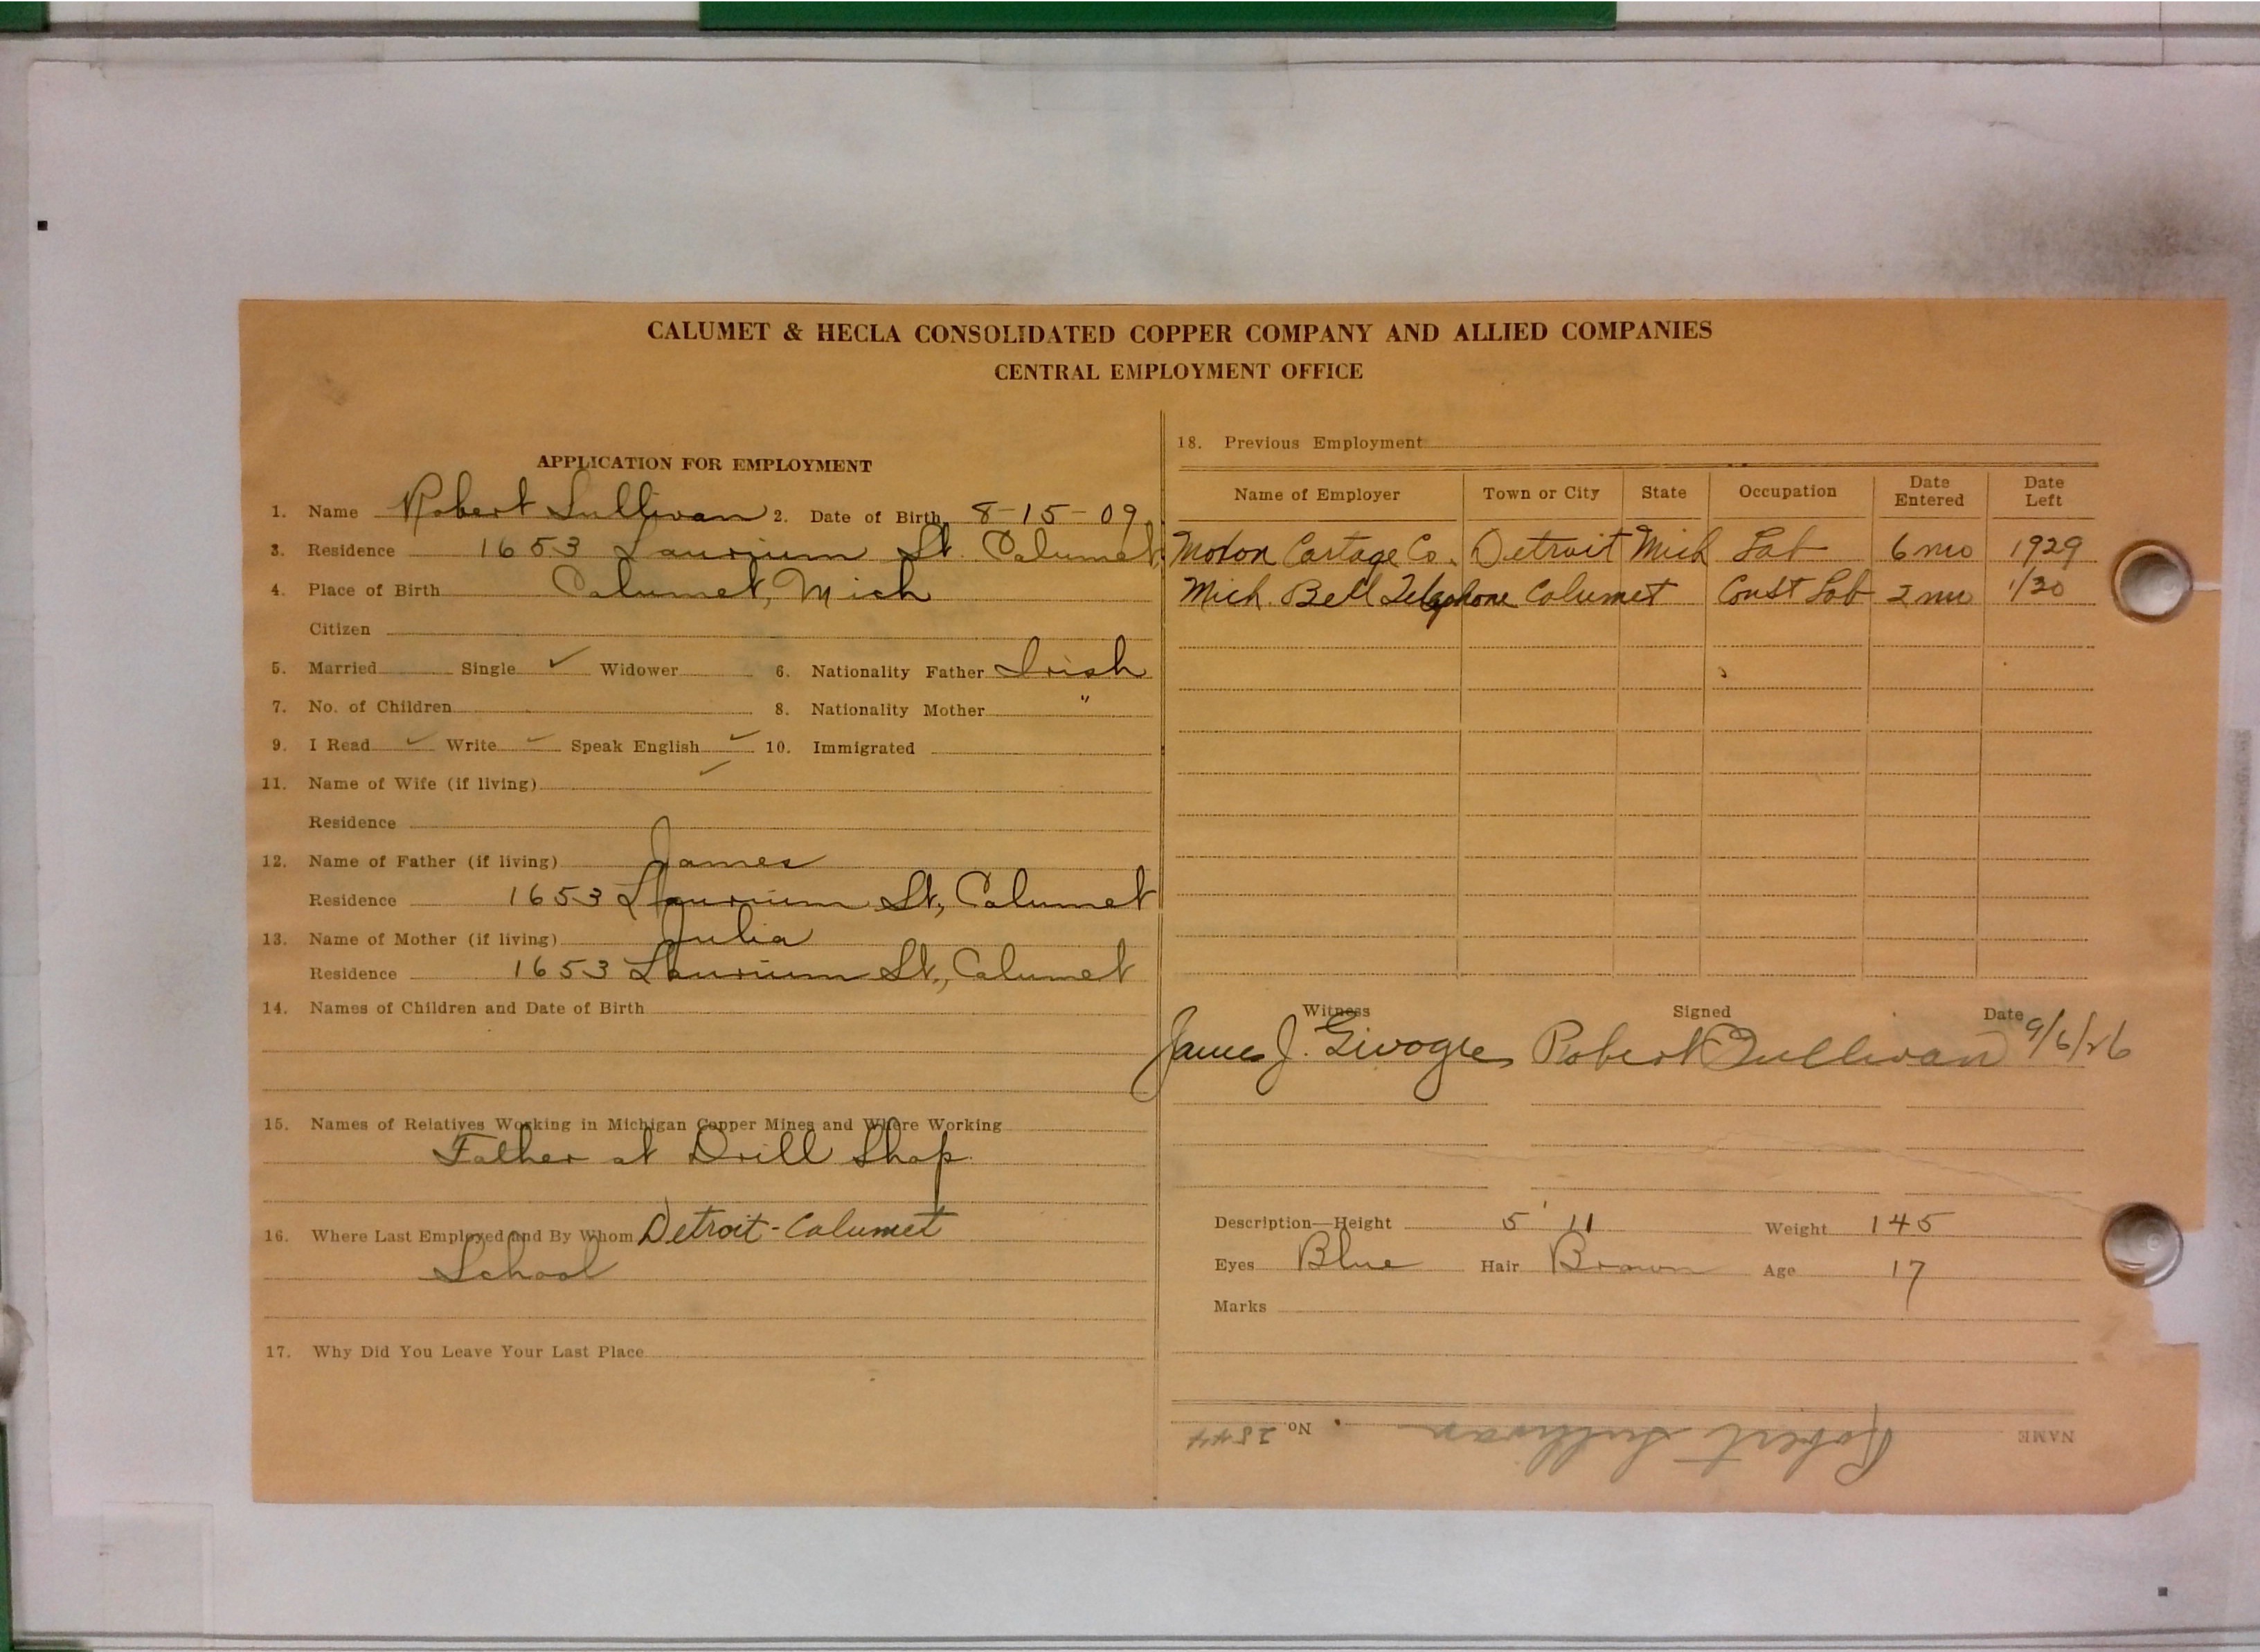 CALUMET & HECLA CONSOLIDATED COPPER COMPANY AND ALLIED COMPANIES
CENTRAL EMPLOYMENT OFFICE
APPLICATION FOR EMPLOYMENT
1. Name Robert Sullivan 2. Date of Birth 8-15-09
3. Residence 1653 Laurium St. Calumet
4. Place of Birth Calumet, Mich
Citizen
5. Married Single ✓ Widower 6. Nationality Father Irish
7. No. of Children 8. Nationality Mother "
9. I Read ✓ Write ✓ Speak English ✓ 10. Immigrated
11. Name of Wife (if living) ✓
Residence
12. Name of Father (if living) James
Residence 1653 Laurium St, Calumet
13. Name of Mother (if living) Julia
Residence 1653 Laurium St., Calumet
14. Names of Children and Date of Birth
15. Names of Relatives Working in Michigan Copper Mines and Where Working
Father at Drill Shop
16. Where Last Employed and By Whom Detroit - Calumet
School
17. Why Did You Leave Your Last Place
18. Previous Employment
Name of Employer Town or City State Occupation Date Entered Date Left
Cartage Co. Detroit Mich Lab 6 mo 1929
Mich. Bell Telephone Calumet Const Lab 2 mo 1/30
Witness Signed Date
James J. Robert Sullivan 9/6/26
Description—Height 5' 11 Weight 145
Eyes Blue Hair Brown Age 17
Marks
NAME Robert Sullivan No. 2844